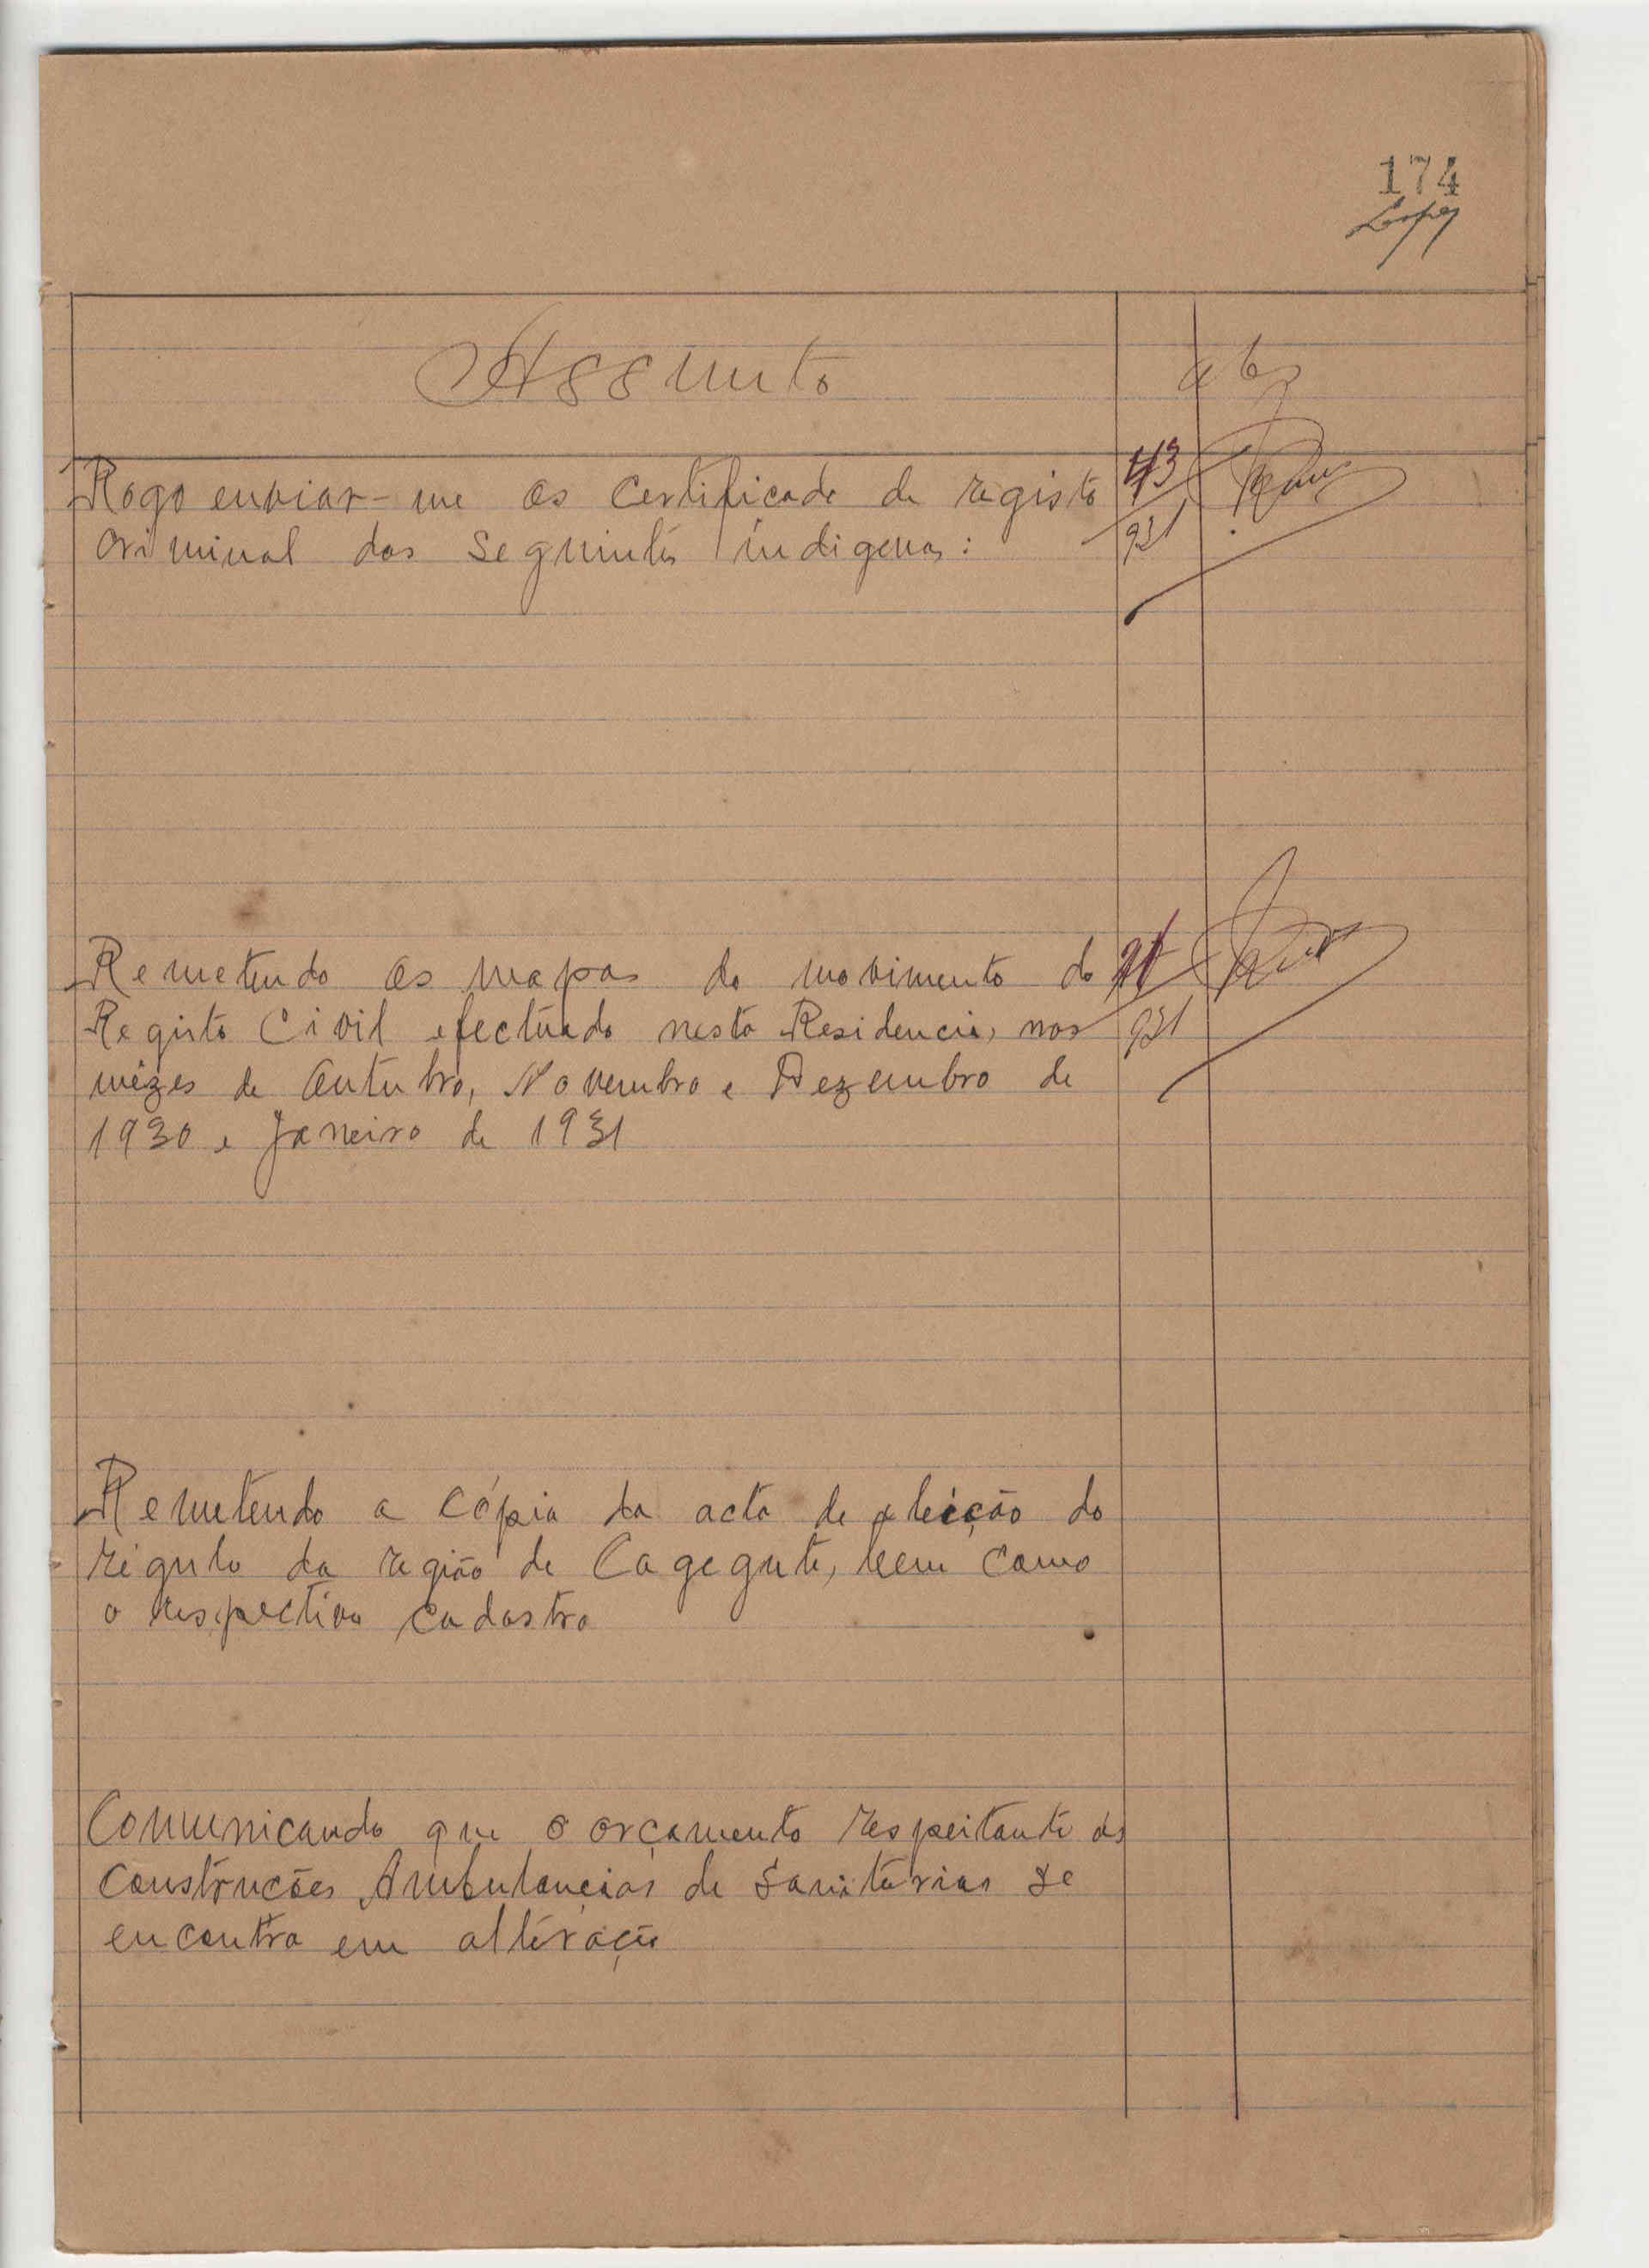 174
Lopes
Assunto
Rogo enviar-me os certificado de registo
criminal dos seguintes indigenas:
43
931
Remetendo os mapas do movimento do
Registo Civil efectuado nesta Residencia, nos
mêzes de Outubro, Novembro e Dezembro de
1930 e Janeiro de 1931
21
931
Remetendo a cópia da acta de eleição do
régulo da região de Cagegute, bem como
o respectivo cadastro
Comunicando que o orçamento respeitante ás
Construcões Ambulancias de Sanitárias se
encontra em alteração